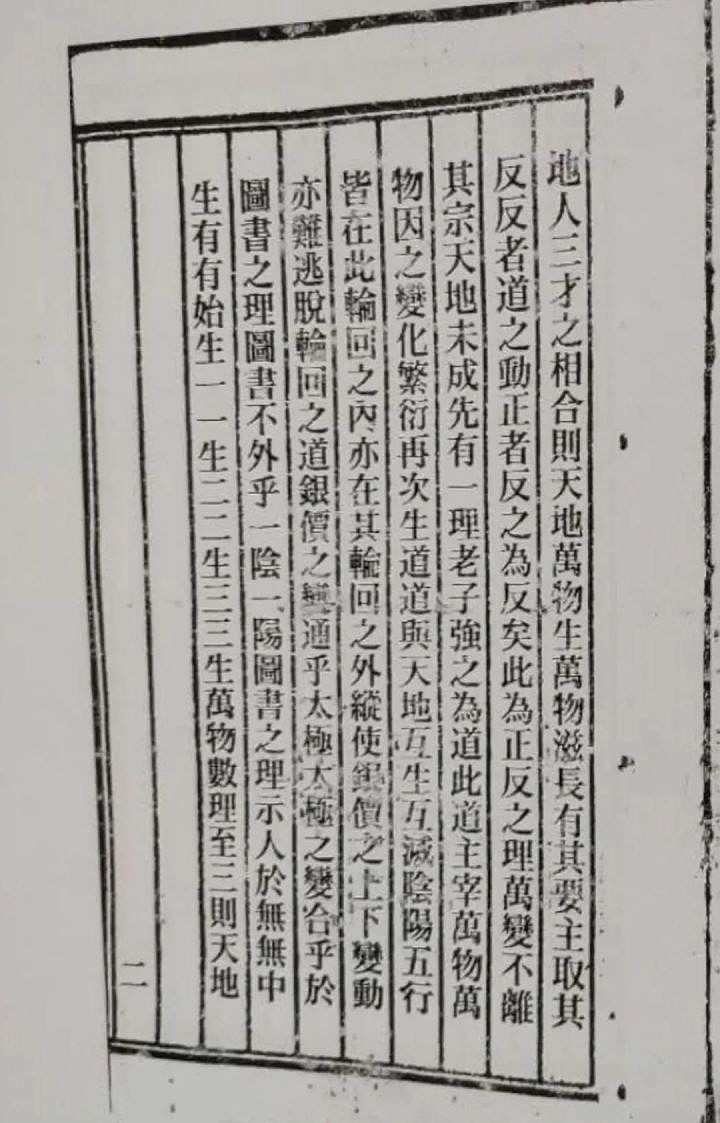 地人三才之相合則天地萬物生萬物滋長有其要主取其
反反者道之動正者反之為反矣此為正反之理萬變不離
其宗天地未成先有一理老子強之為道此道主宰萬物萬
物因之變化繁衍再次生道道與天地互生互滅陰陽五行
皆在此輪回之內亦在其輪回之外縱使銀價之上下變動
亦難逃脫輪回之道銀價之變通乎太極太極之變合乎於
圖書之理圖書不外乎一陰一陽圖書之理示人於無無中
生有有始生一一生二二生三三生萬物數理至三則天地
二